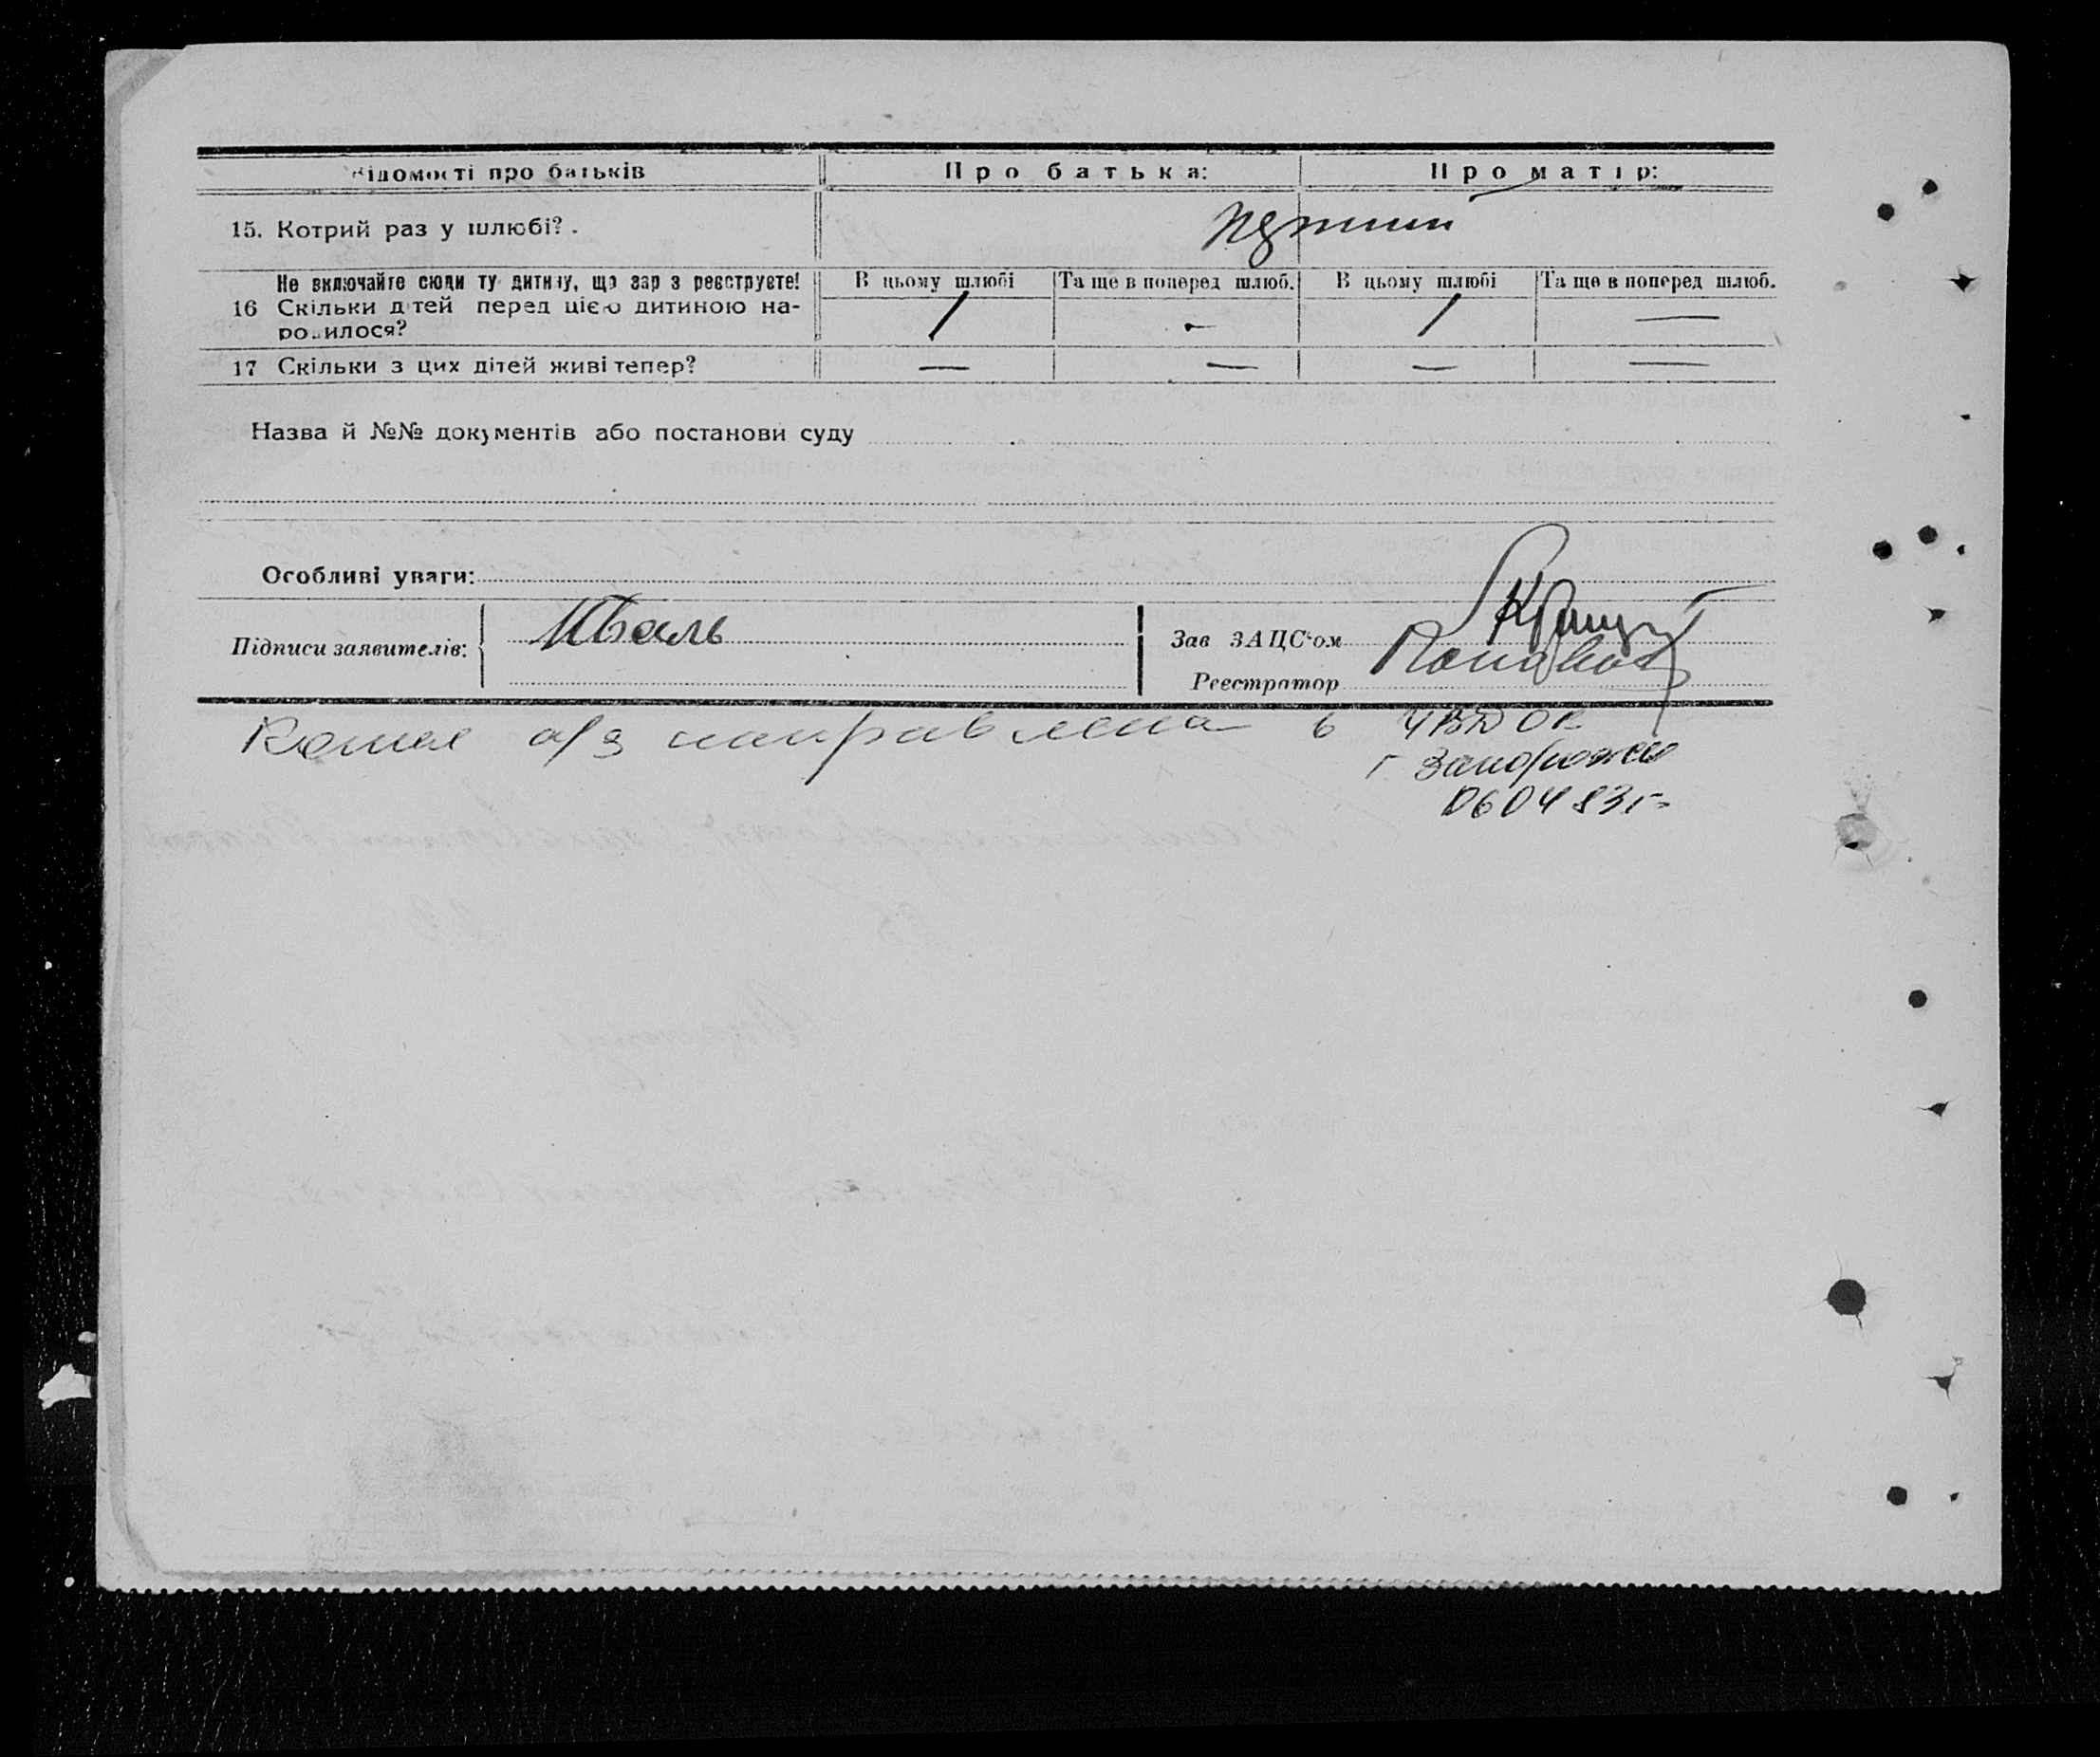 Відомості про батьків Про батька: Про матір:
15. Котрий раз у шлюбі?.
Не включайте сюди ту дитину, що зар з реєструєте! В цьому шлюбі Та ще в поперед шлюб. В цьому шлюбі Та ще в поперед шлюб.
16 Скільки дітей перед цією дитиною на-
родилося? / - / —
17 Скільки з цих дітей живі тепер? — — — —
Назва й №№ документів або постанови суду
Особливі уваги:
Підписи заявителів: Зав ЗАЦС'ом
Реєстратор
Копия а/з направлена в
г Запорожье
060483г.